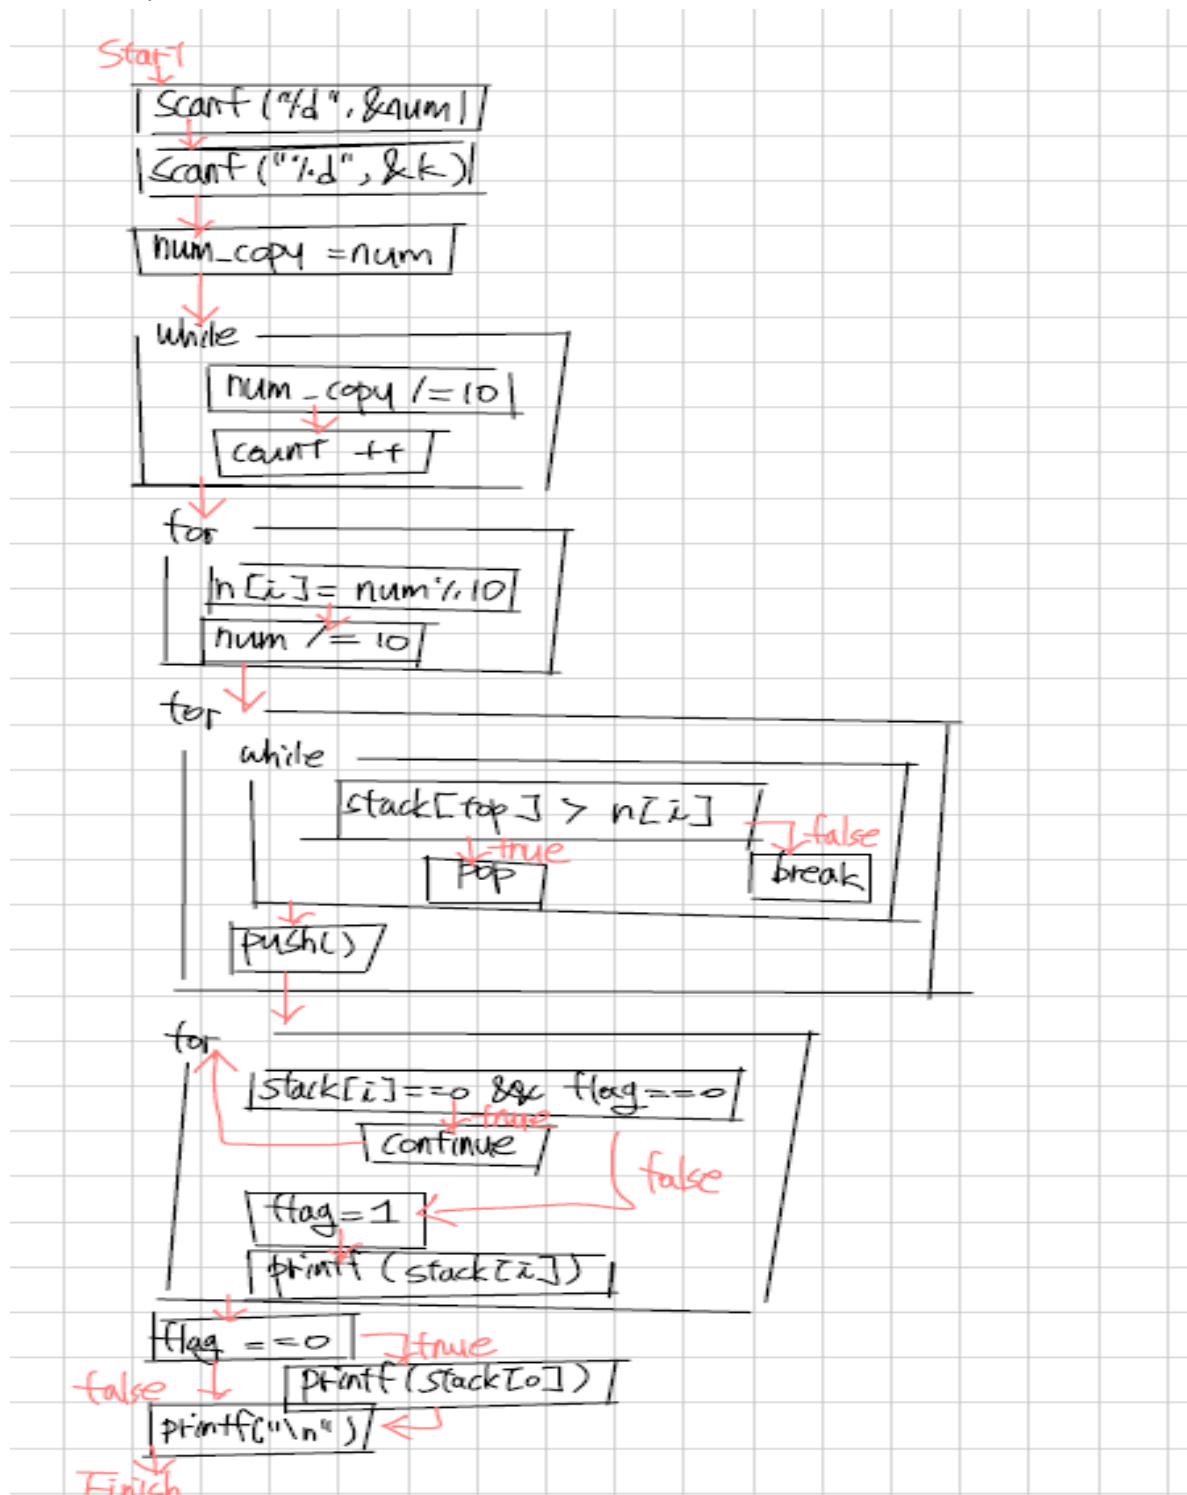 Start
scanf("%d", &num)
scanf("%d", &k)
num_copy = num
while
num_copy /= 10
count ++
for
n[i] = num % 10
num /= 10
for
while
stack[top] > n[i]
true
false
pop
break
push()
for
stack[i]==0 && flag==0
true
continue
false
flag=1
printf(stack[i])
flag ==0
true
printf(stack[0])
false
printf("\n")
Finish